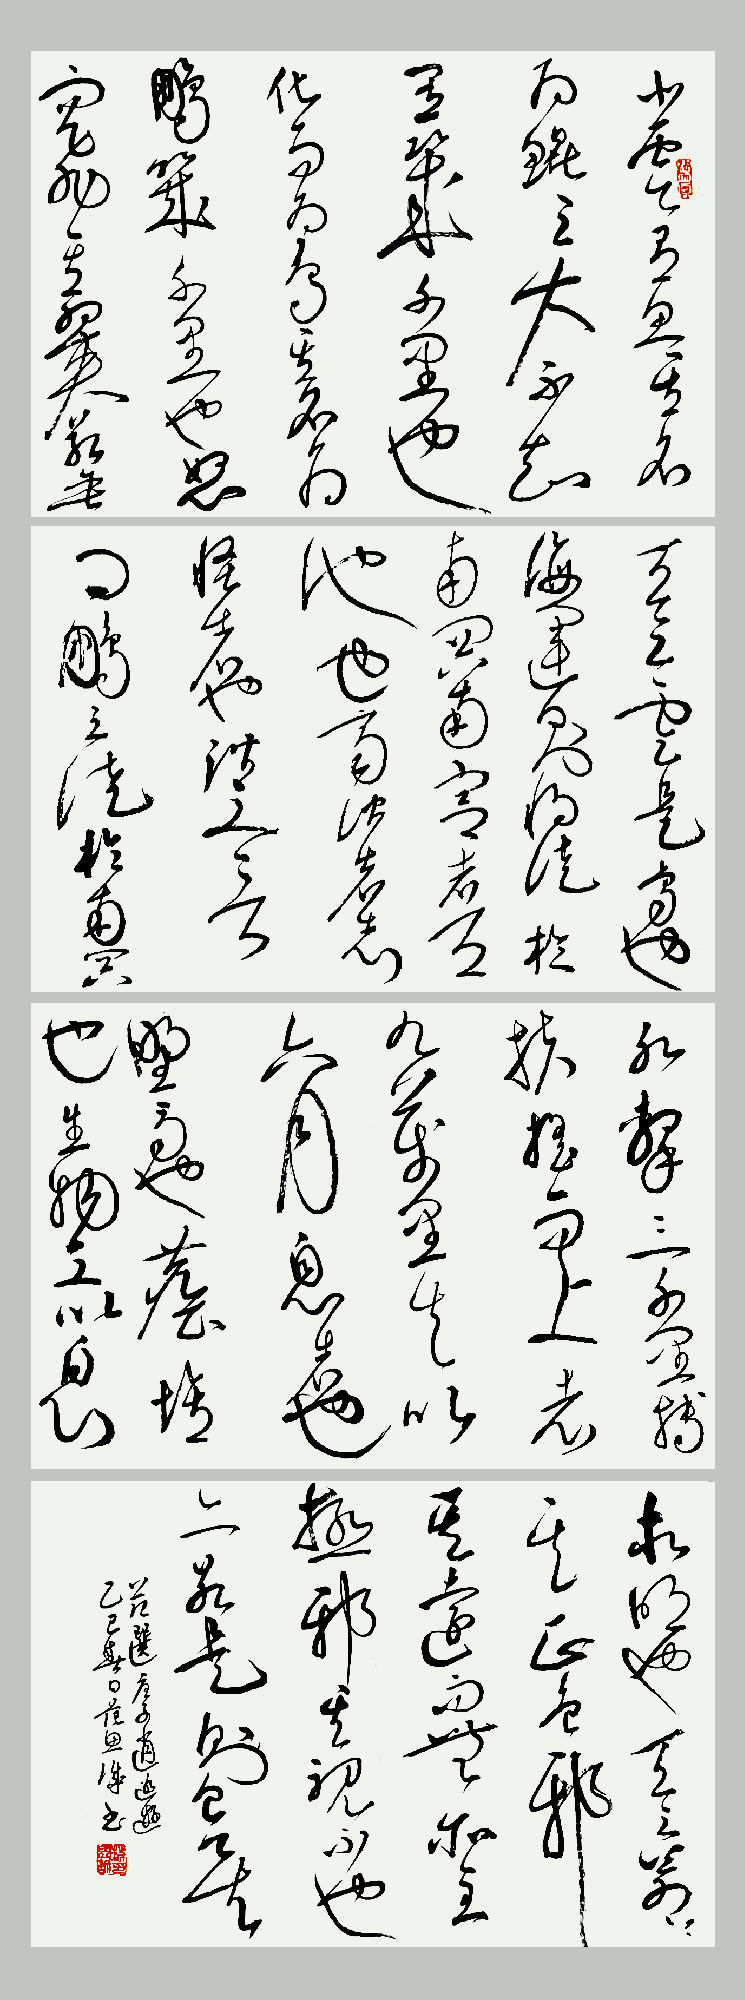 北冥有魚其名
为鯤之大不知
其幾千里也
化而为鸟其名为
鵬幾千里也怒
而飛其翼若垂
天之雲是鳥也
海運則將徙於
南冥南冥者天
池也齊諧者志
怪者也諧之言
曰鵬之徙於南冥
水擊三千里摶
扶搖而上者
九萬里去以
六月息者也
野馬也塵埃
也生物之以息
相吹也天之蒼蒼
其正色邪
其遠而無所至
極邪其視下也
亦若是則已矣
節選庄子逍遥遊
乙巳春日書